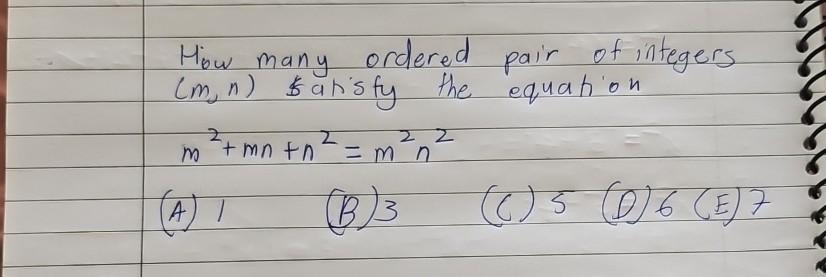 How many ordered pair of integers
(m, n) satisfy the equation
m²+mn+n² = m²n²
(A) 1 (B) 3 (C) 5 (D) 6 (E) 7